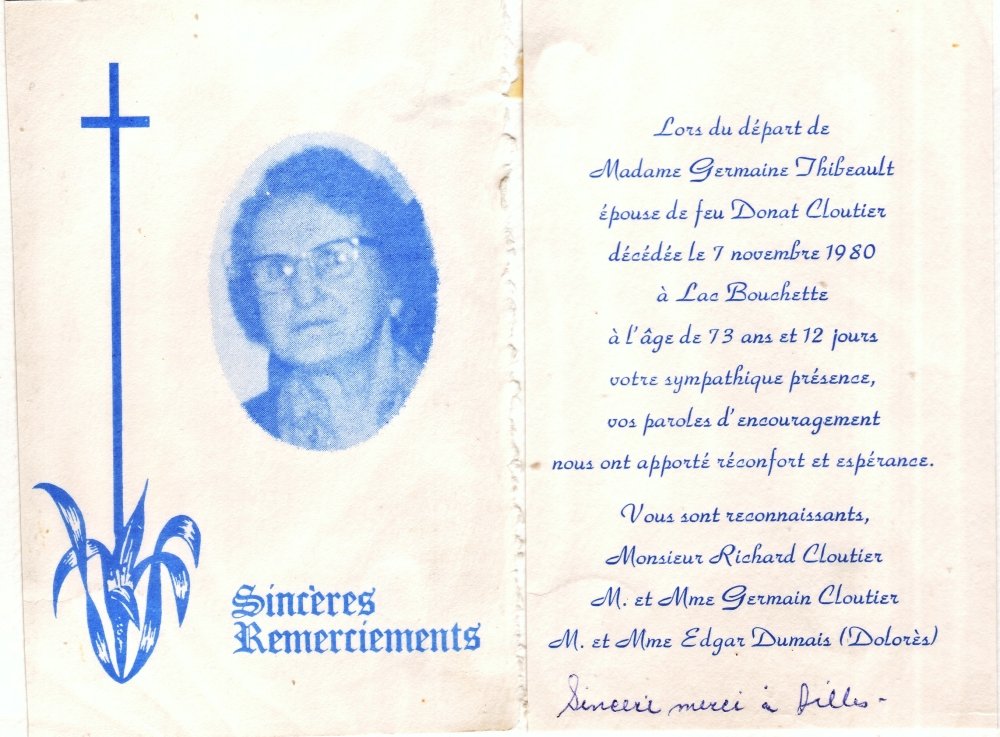 Sincères
Remerciements
Lors du départ de
Madame Germaine Thibeault
épouse de feu Donat Cloutier
décédée le 7 novembre 1980
à Lac Bouchette
à l'âge de 73 ans et 12 jours
votre sympathique présence,
vos paroles d'encouragement
nous ont apporté réconfort et espérance.
Vous sont reconnaissants,
Monsieur Richard Cloutier
M. et Mme Germain Cloutier
M. et Mme Edgar Dumais (Dolorès)
Sincere merci à